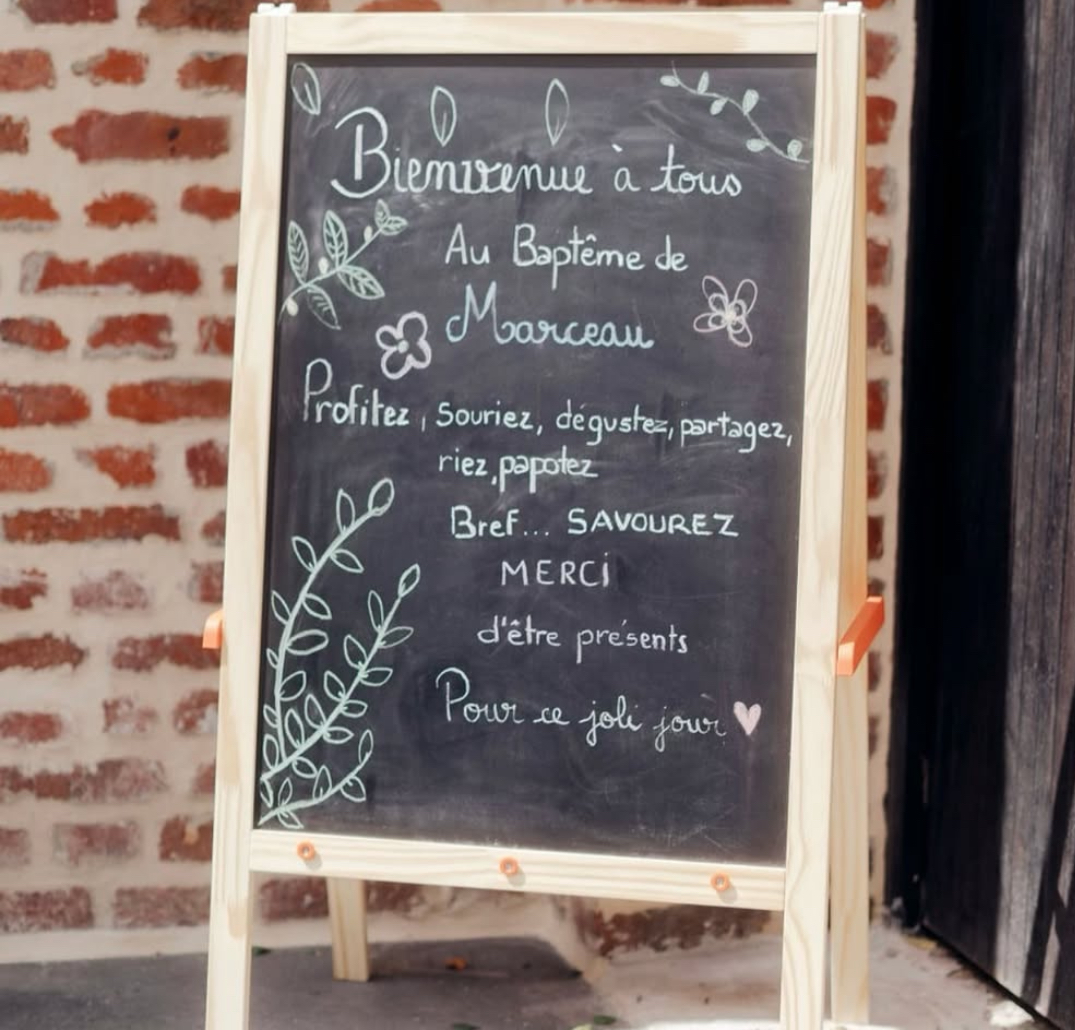 Bienvenue à tous
Au Baptême de
Marceau
Profitez, Souriez, dégustez, partagez,
riez, papotez
Bref... SAVOUREZ
MERCi
d'être présents
Pour ce joli jour